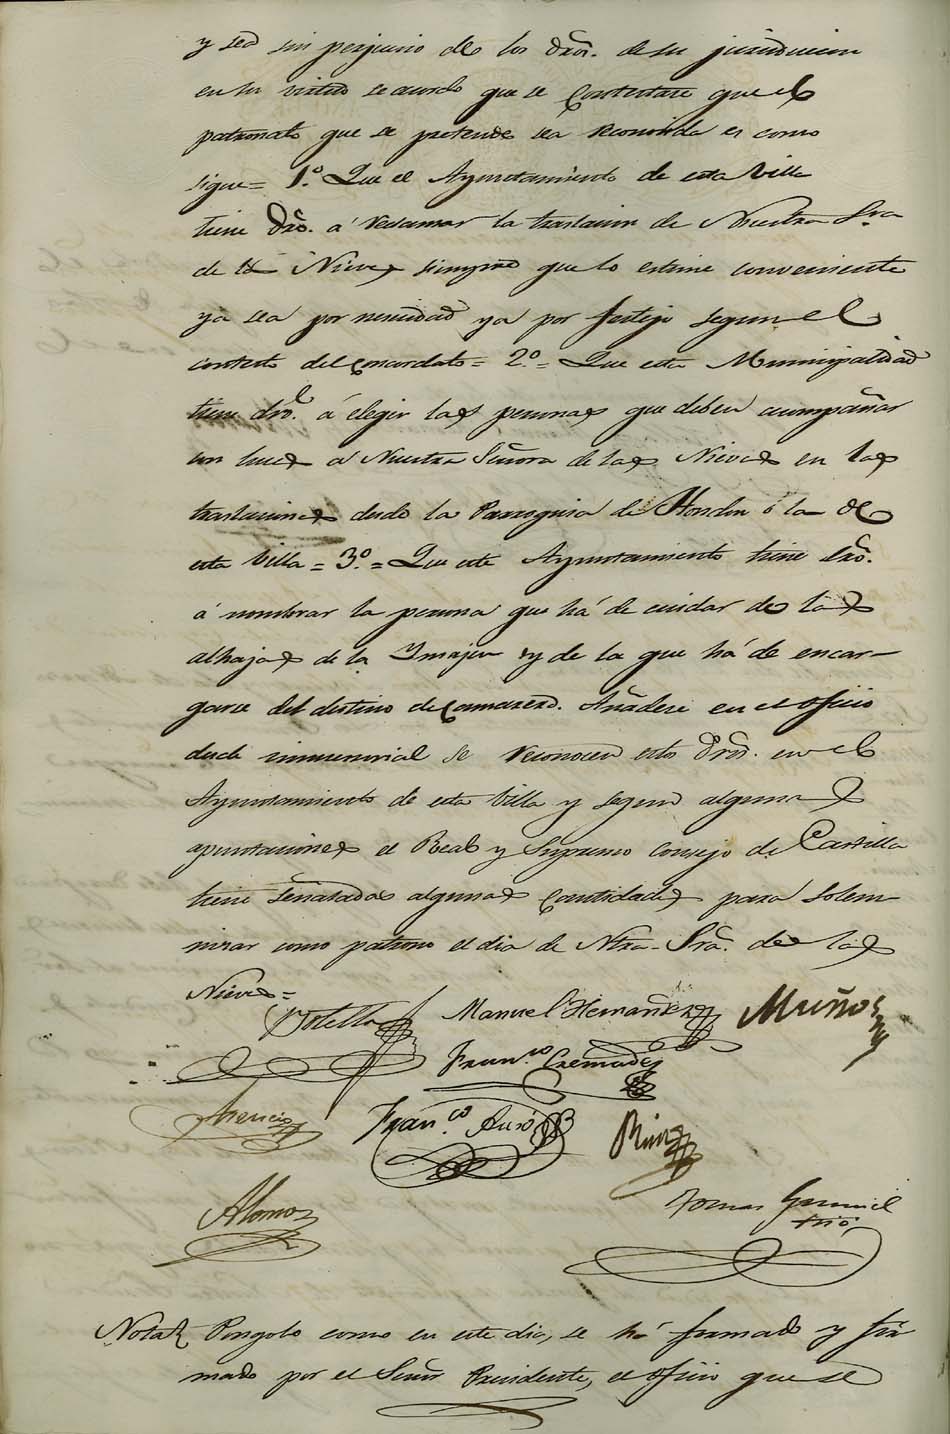 y sea sin perjuicio de los dros. de su jurisdiccion
en su virtud se acordo que se Contestare que el
patronato que se pretende sea reconosca es como
sigue= 1.º Que el Ayuntamiento de esta Villa
tiene Dro. a reclamar la traslacion de Nuestra Sra
de las Nieves siempre que lo estime conveniente
ya sea por necesidad ya por festejo segun el
contesto del Concordato = 2.º = Que esta Municipalidad
tiene dro. á elegir las personas que deben acompañar
con luces a Nuestra Señora de las Nieves en las
traslaciones desde la Parroquia de Hondon ó la de
esta Villa = 3.º = Que este Ayuntamiento tiene Dro.
á nombrar la persona que há de cuidar de las
alhajas de la Ymajen y de la que há de encar-
garse del destino de Camarero. Añadese en el oficio
desde inmemorial se reconocen estos Dros. en el
Ayuntamiento de esta Villa y segun algunas
apuntaciones el Real y Supremo Consejo de Castilla
tiene señaladas algunas Cantidades para solem-
nizar como patrono el dia de Ntra. Sra. de las
Nieves=
Botella Manuel Hernandez Muños
Fran.co Cremades
Asencio Fran.co Azno Rizo
Alonso
Tomas
srio
Nota Pongolo como en este dia, se há formado y fir
mado por el Señor Presidente, el oficio que se